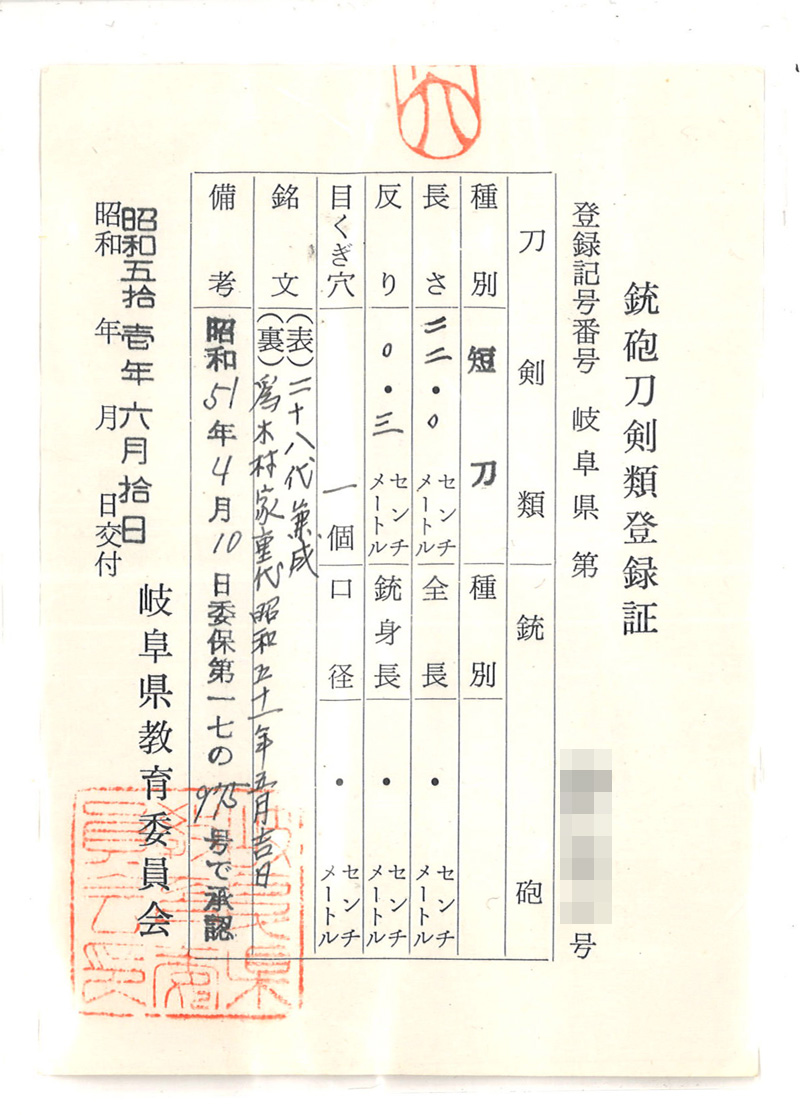 銃砲刀剣類登録証
登録記号番号 岐阜県 第 号
刀剣類 銃砲
種別 短刀 種別
長さ 二二・〇 センチメートル 全長 ・ センチメートル
反り 〇・三 センチメートル 銃身長 ・ センチメートル
目くぎ穴 一個 口径 ・ センチメートル
銘文 (表) 二十八代兼成
(裏) 為木村家重代昭和五十一年五月吉日
備考 昭和51年4月10日委保第一七の975号で承認
昭和五拾壱年六月拾日
昭和 年 月 日交付
岐阜県教育委員会